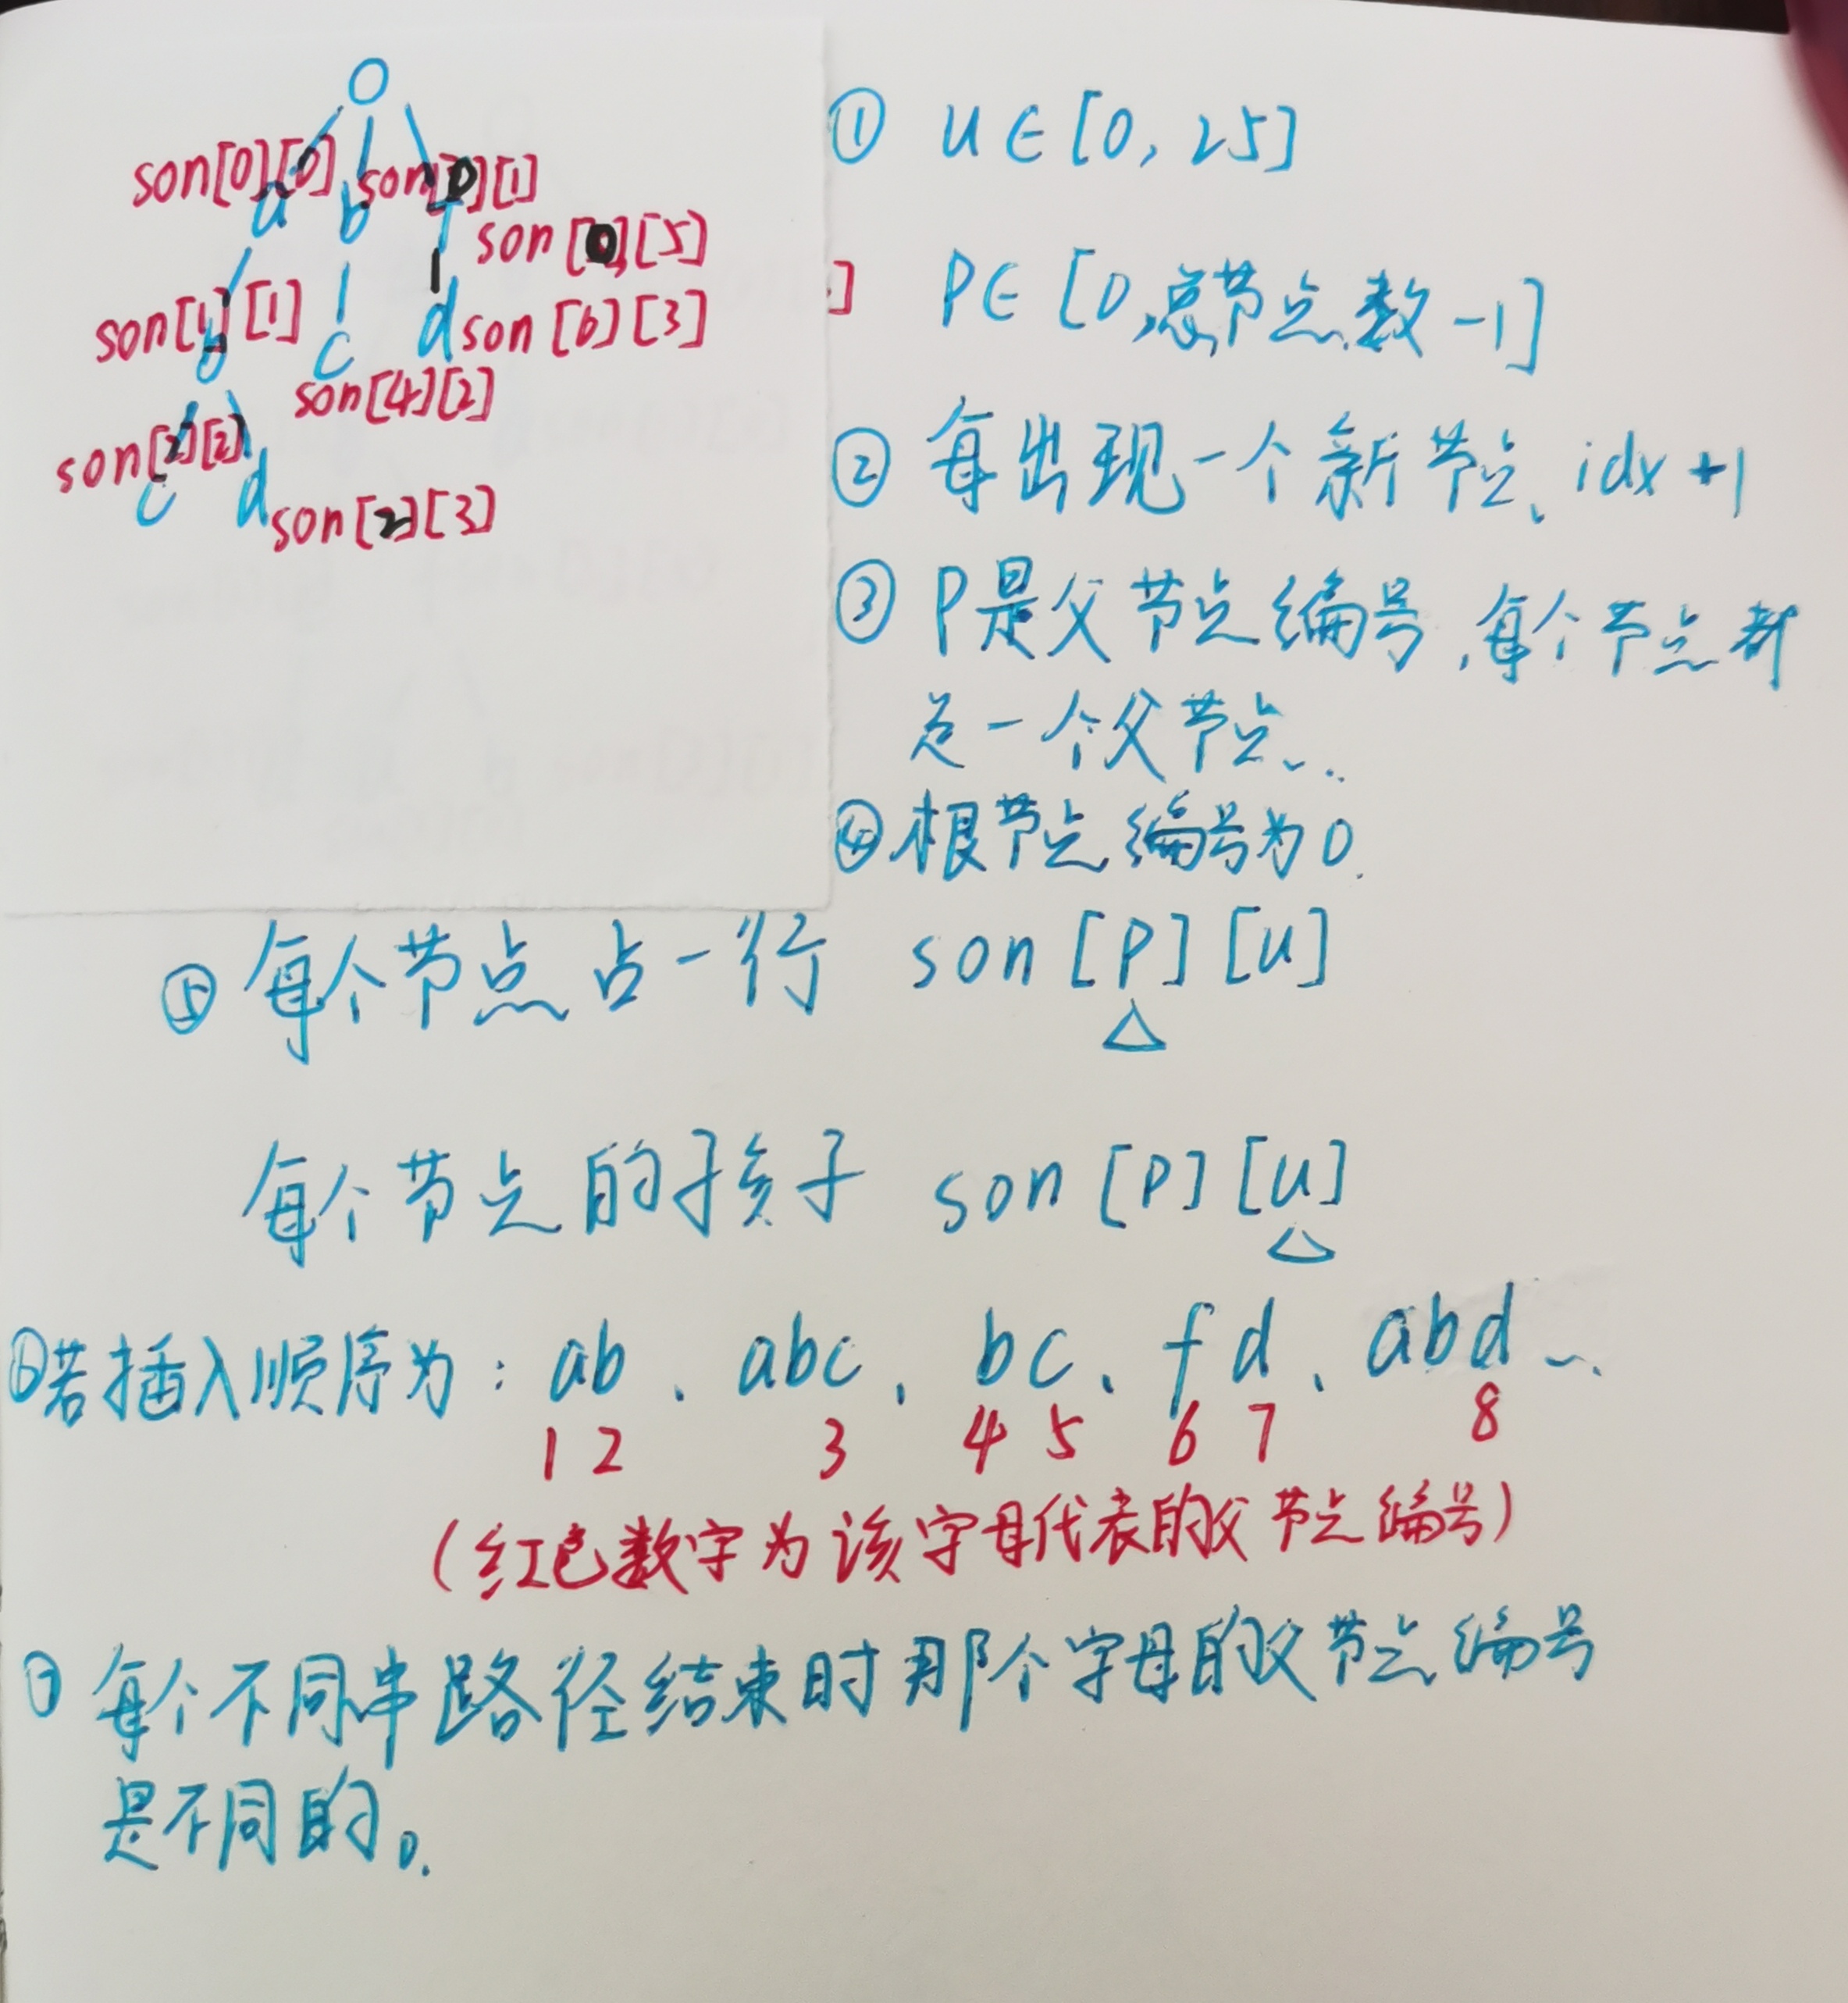 0
son[0][0]
son[0][1]
a
b
f
son[0][5]
son[1][1]
b
c
d
son[6][3]
son[4][2]
son[2][2]
c
d
son[2][3]
① u∈[0,25]
] P∈[0,总节点数-1]
② 每出现一个新节点、idx+1
③ P是父节点编号,每个节点都
是一个父节点...
④根节点编号为0.
⑤每个节点占一行 son[P][u]
每个节点的孩子 son[P][u]
⑥若插入顺序为: ab、abc、bc、fd、abd...
1 2 3 4 5 6 7 8
(红色数字为该字母代表的父节点编号)
⑦ 每个不同串路径结束时那个字母的父节点编号
是不同的。